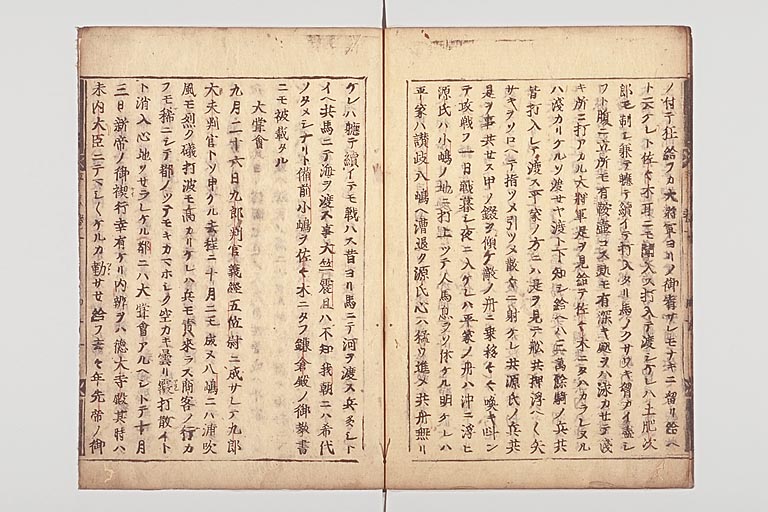 ノ付テ狂給フカ大将軍ヨリノ御宥サレモナキニ留リ給ヘ
ト云ケレト佐々木耳ニモ聞入ス打入テ渡シケレハ土肥次
郎モ制シ兼テ軈テ續イテ打入タリ馬ノクサワキ胷カイ盡シ
フト腹ニ立所モ有鞍壷コス所モ有深キ所ヲハ泳カサテ浅
キ所ニ打アカル大将軍是ヲ見給テ佐々木ニタハカラレヌル
ハ浅カリケルソ渡セヤ渡セト下知シ給ヘハ三萬餘騎ノ兵共
皆打入レテ渡ス平家ノ方ニハ是ヲ見テ舩共押浮ヘ〱矢
サキヲソロヘテ指ツメ引ツメ散々ニ射ケレ共源氏ノ兵共
是ヲ事共セス甲ノ錣ヲ傾ケ敵ノ舟ニ乗移々々喚キ叫ン
テ攻戦フ一日戦暮シ夜ニ入ケレハ平家ノ舟ハ沖ニ浮ヒ
源氏ハ小嶋ノ地ニ打上ツテ人馬息ヲソ休ケル明ケレハ
平家ハ讃岐八嶋ヘ漕退ク源氏心ハ猛ク進メ共舟無リ
ケレハ軈テ續イテモ戦ハス昔ヨリ馬ニテ河ヲ渡ス兵多シト
イヘ共馬ニテ海ヲ渡ス事天竺震旦ハ不知我朝ニハ希代
ノタメシナリトテ備前小嶋ヲ佐々木ニタフ鎌倉殿ノ御教書
ニモ被載タル
大嘗會
九月二十六日九郎判官義經五位尉ニ成サレテ九郎
大夫判官トソ申ケル去程ニ十月ニモ成ヌ八嶋ニハ浦吹
風モ烈ク礒打波モ高カリケレハ兵モ責來ラス商客ノ行カ
フモ稀ニシテ都ノツテモキカマホシク空カキ曇リ霰打散イト
ト消入心地ソセラレケル都ニハ大嘗會アルヘシトテ十月
三日新帝ノ御禊行幸有ケリ内辨ヲハ徳大寺殿其時ハ
未内大臣ニテマシ〱ケルカ勤サセ給フ去々年先帝ノ御